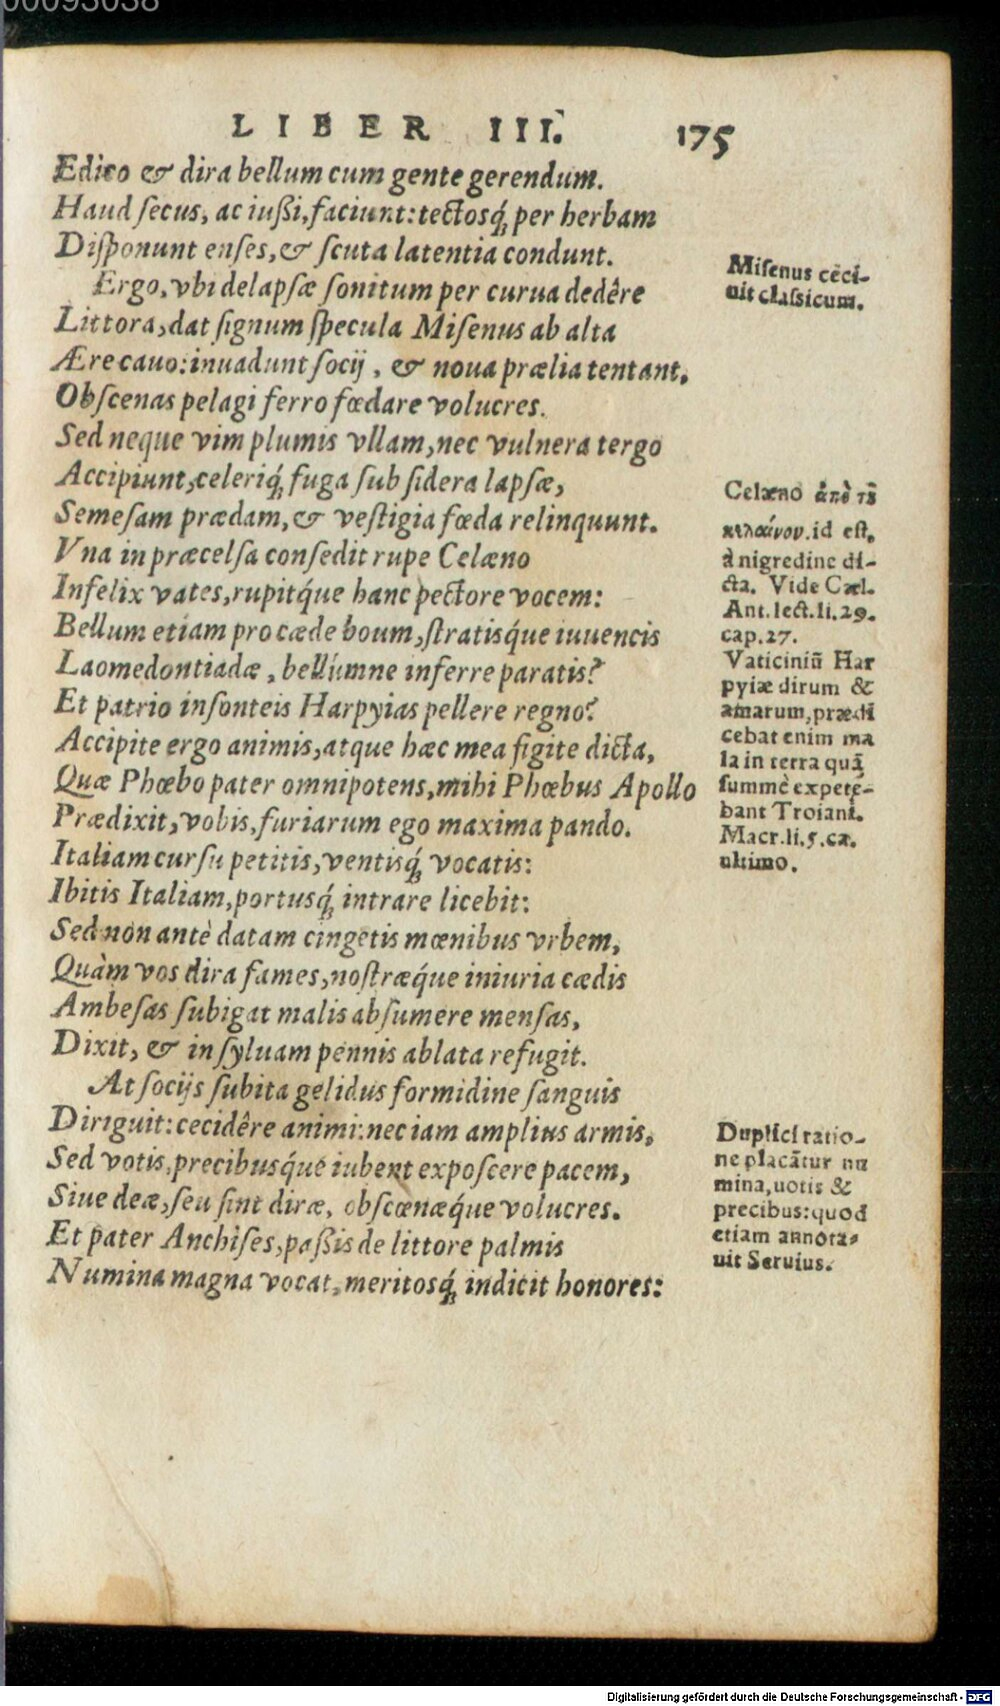 00093038
LIBER III. 175
Edico & dira bellum cum gente gerendum.
Haud ſecus, ac iußi, faciunt: tectosq́; per herbam
Diſponunt enſes, & ſcuta latentia condunt.
Ergo, vbi delapſæ ſonitum per curua dedêre
Littora, dat ſignum ſpecula Miſenus ab alta
Ære cauo: inuadunt ſocij, & noua prælia tentant,
Obſcenas pelagi ferro fœdare volucres.
Sed neque vim plumis vllam, nec vulnera tergo
Accipiunt, celeriq́; fuga ſub ſidera lapſæ,
Semeſam prædam, & veſtigia fœda relinquunt.
Vna in præcelſa conſedit rupe Celæno
Infelix vates, rupitq́ue hanc pectore vocem:
Bellum etiam pro cæde boum, ſtratisq́ue iuuencis
Laomedontiadæ, bellúmne inferre paratis?
Et patrio inſonteis Harpyias pellere regno?
Accipite ergo animis, atque hæc mea figite dicta,
Quæ Phœbo pater omnipotens, mihi Phœbus Apollo
Prædixit, vobis, furiarum ego maxima pando.
Italiam curſu petitis, ventisq́; vocatis:
Ibitis Italiam, portusq́; intrare licebit:
Sed non antè datam cingetis mœnibus vrbem,
Quàm vos dira fames, noſtræq́ue iniuria cædis
Ambeſas ſubigat malis abſumere menſas,
Dixit, & in ſyluam pennis ablata refugit.
At ſocijs ſubita gelidus formidine ſanguis
Diriguit: cecidêre animi: nec iam amplius armis,
Sed votis, precibusq́ue iubent expoſcere pacem,
Siue deæ, ſeu ſint diræ, obſcœnæq́ue volucres.
Et pater Anchiſes, paßis de littore palmis
Numina magna vocat, meritosq́; indicit honores:
Miſenus ceci-
nit claſsicum.
Celæno ἀπὸ τȣ͂
κελαίνου. id eſt,
à nigredine di-
cta. Vide Cæl.
Ant. lect. li. 29.
cap. 27.
Vaticiniū Har
pyiæ dirum &
amarum, prædi
cebat enim ma
la in terra quā
ſummè expete-
bant Troiani.
Macr. li. 5. ca.
ultimo.
Duplici ratio-
ne placātur nu
mina, uotis &
precibus: quod
etiam annota-
uit Seruius.
Digitalisierung gefördert durch die Deutsche Forschungsgemeinschaft - DFG